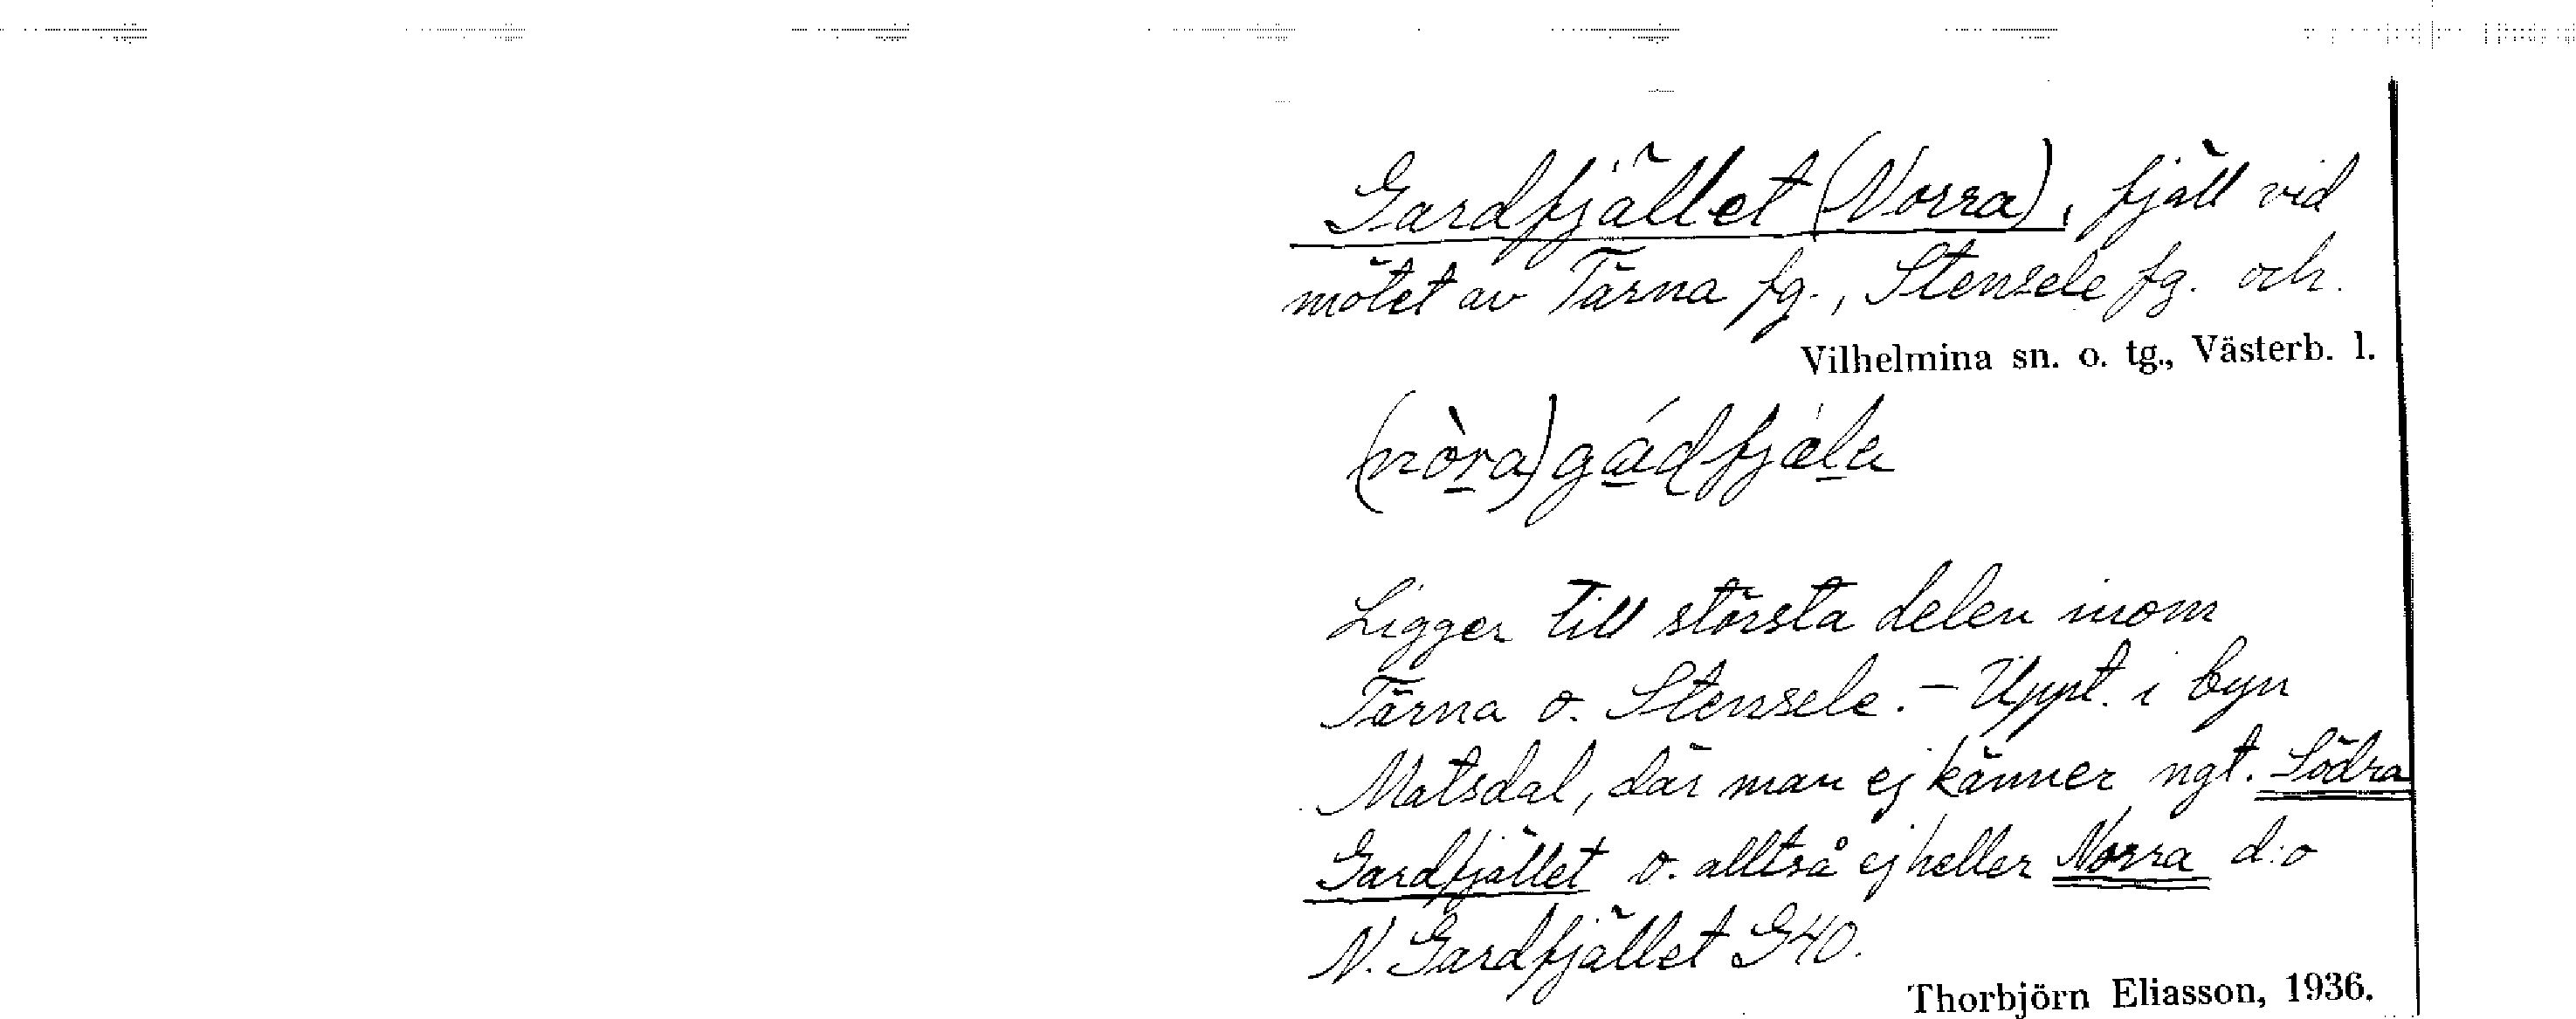 Gardfjället (Norra), fjäll vid
mötet av Tärna fg., Stensele fg. och
Vilhelmina sn. o. tg., Västerb. l.
(nòra) gádfjälø
Ligger till största delen inom
Tärna o. Stensele. – Uppt. i byn
Matsdal, där man ej känner ngt. Södra
Gardfjället o. alltså ej heller Norra d:o
N. Gardfjället G40.
Thorbjörn Eliasson, 1936.